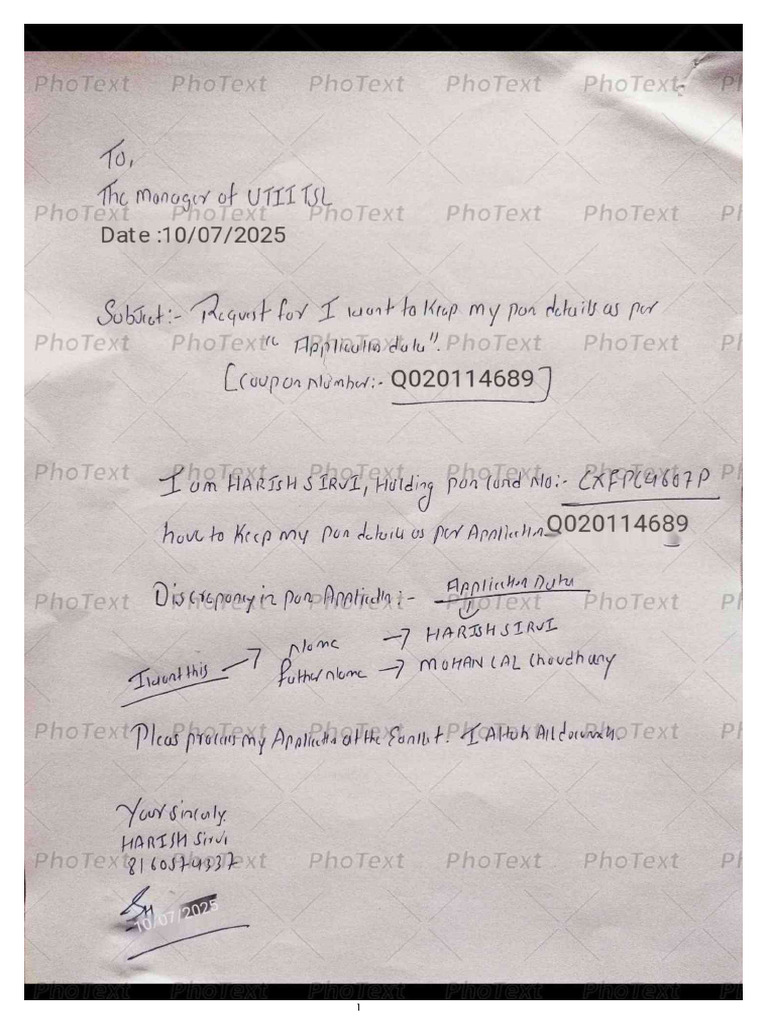 To,
The Manager of UTIITSL
Date :10/07/2025
Subject:- Request for I want to keep my pan details as per
"Application data".
[Coupon Number:- Q020114689]
I am HARISH SIRVI, Holding pan card No:- CXFPC4607P
have to keep my pan details as per Application Q020114689
Discrepancy in pan Application:- Application Data
Name → HARISH SIRVI
I want this → father Name → MOHAN LAL Choudhary
Pleas process my Application at the Earliest. I Attch All documents.
Your sincerly.
HARISH Sirvi
8160574337
10/07/2025
PhoText
1